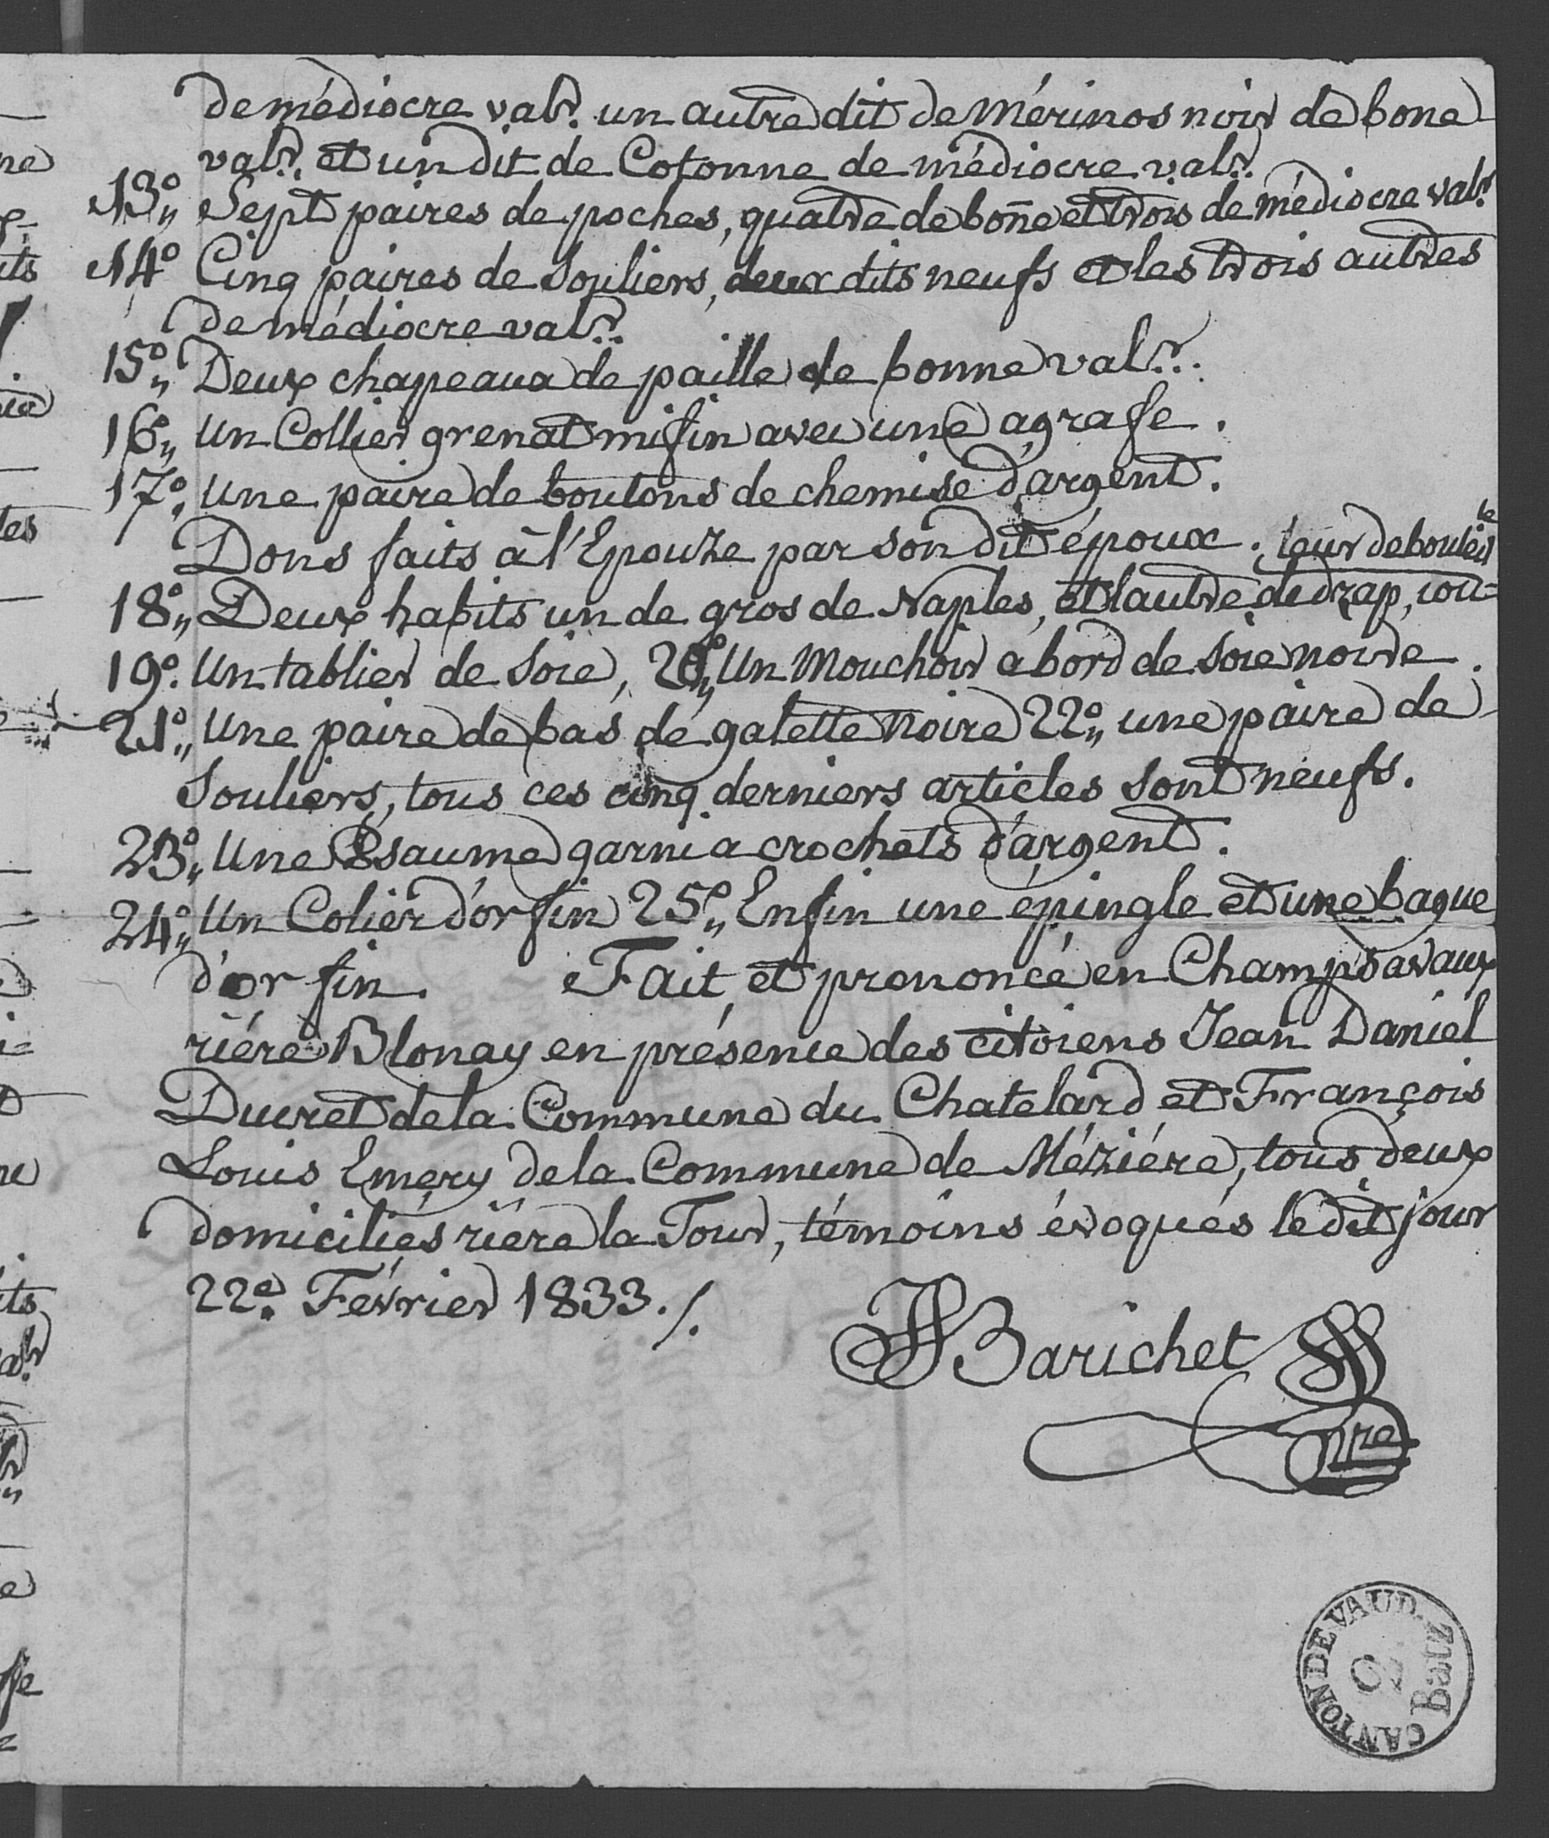 de médiocre valr. un autre dit de Mérinos noir de bone
valr. et un dit de Cotonne de médiocre valr.
13o„ Sept paires de poches, quatre de bone et trois de médiocre valr.
14o Cinq paires de Souliers, deux dits neufs et les trois autres
de médiocre valr.
15o„ Deux chapeaux de paille de bonne valr.
16o„ Un Collier grenat mifin avec une agrafe.
17o. Une paire de boutons de chemise d'argent.
Dons faits à l'Epouze par son dit époux.
18o„ Deux habits un de gros de Naples, et lautre de drap, cou=
leur de bouteille
19o. Un tablier de Soie, 20o„ Un Mouchoir a bord de Soie noire.
21o„ Une paire de bas de galette noire 22o„ une paire de
Souliers, tous ces cinq derniers articles sont neufs.
23o„ Une Psaume garni a crochets d'argent.
24o„ Un Colier d'or fin 25o„ Enfin une épingle et une bague
d'or fin. Fait et prononcé en Champsavaux
riére Blonay en présence des citoiens Jean Daniel
Ducret de la Commune du Chatelard et François
Louis Emery de la Commune de Méziére, tous deux
domiciliés riére la Tour, témoins évoqués le dit jour
22e. Février 1833./.
Barichet
nre
CANTON DE VAUD
Batz